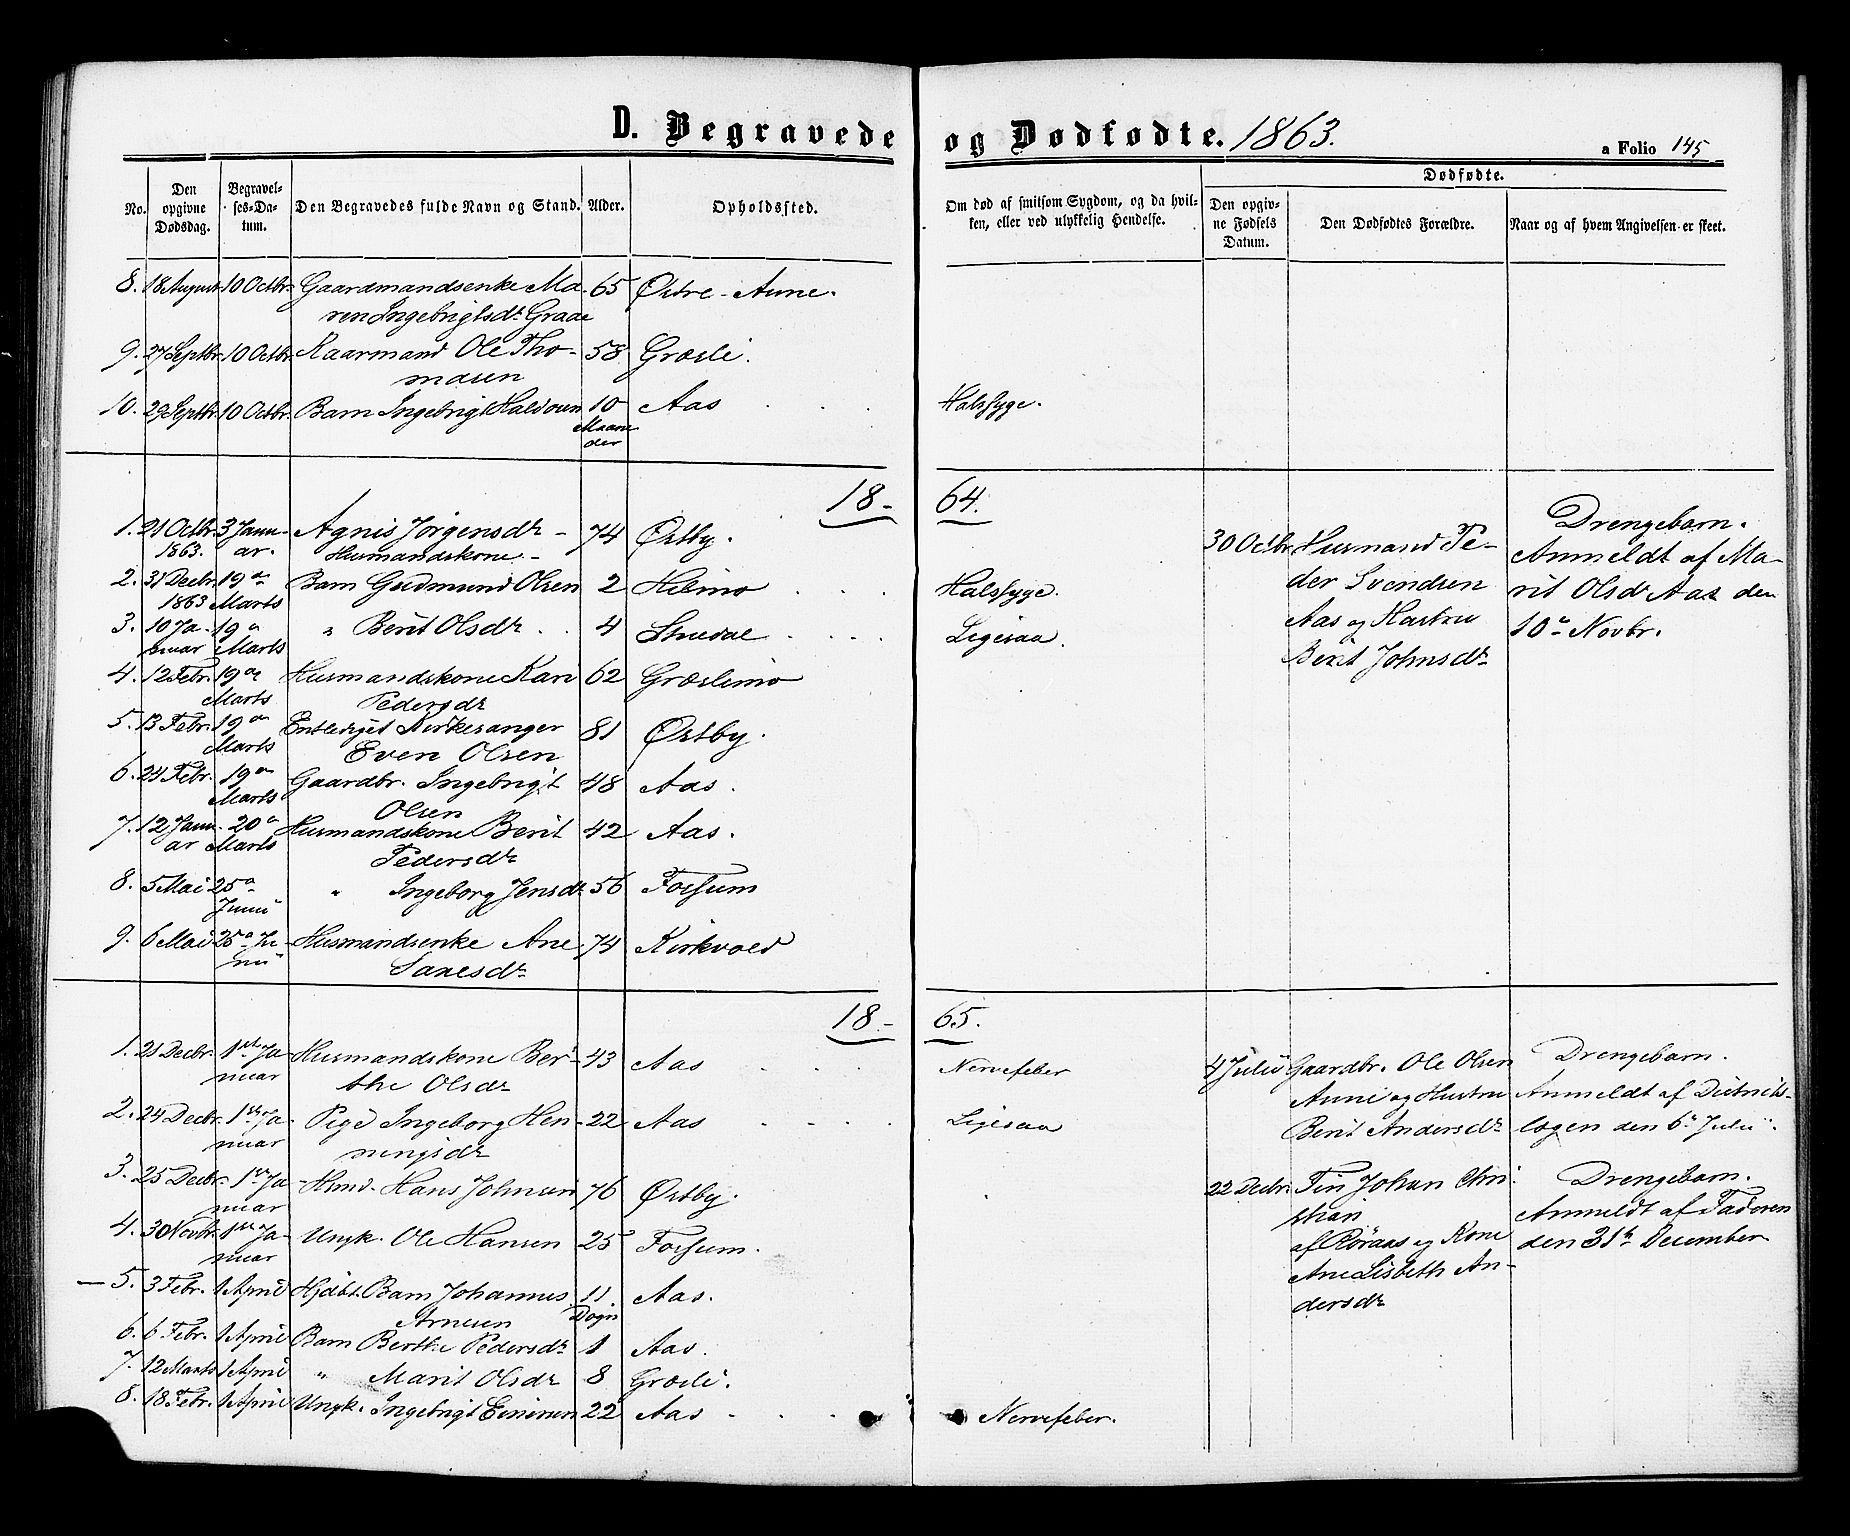 D. Begravede og Dødfødte. 1863.
a Folio 145
No. Den opgivne Dødsdag. Begravelses-Datum. Den Begravedes fulde Navn og Stand. Alder. Opholdssted. Om død af smitsom Sygdom, og da hvilken, eller ved ulykkelig Hendelse. Dødfødte. Den opgivne Fødsels Datum. Den Dødfødtes Forældre. Naar og af hvem Angivelsen er skeet.
8. 18 August 10 Octbr. Gaardmandsenke Ma- 65 Østre-Aune.
ren Ingebrigtsdr Graae
9. 27 Septbr. 10 Octbr. Kaarmand Ole Tho- 58 Græsli.
masen
10. 29 Septbr. 10 Octbr. Barn Ingebrigt Haldosen 10 Aas Halssyge.
Maaneder
18-64.
1. 21 Octbr. 3 Janu- Agnis Jørgensdr - 74 Østby.
1863. ar. Husmandskone -
2. 31 Decbr. 19de Barn Gudmund Olsen 2 Hilmo Halssyge.
1863 Marts
3. 10 Ja- 19de " Berit Olsdr 4 Stuedal Ligesaa.
nuar Marts
4. 12 Febr. 19de Husmandskone Kari 62 Græslimo
Marts Pedersdr
5. 13 Febr. 19de Entlediget Kirkesanger 81 Østby.
Marts Even Olsen
6. 24 Febr. 19de Gaardbr. Ingebrigt 48 Aas.
Marts Olsen
7. 12 Janu- 20de Husmandskone Berit 42 Aas.
ar Marts Pedersdr
8. 5 Mai 25de " Ingeborg Jensdr 56 Fossum
Junii
9. 6 Mai 25de Ju- Husmandsenke Ane 74 Kirkvold
nii Sanesdr
30 Octbr. Husmand Pe-
der Svendsen
Aas og Hustru
Berit Johnsdr
Drengebarn.
Anmeldt af Ma-
rit Olsdr Aas den
10de Novbr.
18-65.
1. 21 Decbr. 1ste Ja- Husmandskone Ber- 43 Aas Nervefeber
nuar the Olsdr
2. 24 Decbr. 1ste Ja- Pige Ingeborg Hen- 22 Aas Ligesaa
nuar ningsdr
3. 25 Decbr. 1ste Ja- Hmd. Hans Johnsen 76 Østby.
nuar
4. 30 Novbr. 1ste Ja- Ungk. Ole Hansen 25 Fossum.
nuar
5. 3 Febr. 1 April Hjdbt. Barn Johannes 11 Aas.
Arnesen Døgn
6. 6 Febr. 1 April Barn Berthe Pedersdr 1 Aas.
7. 12 Marts 1 April " Marit Olsdr 8 Græsli.
8. 18 Febr. 1 April Ungk. Ingebrigt Einersen 22 Aas Nervefeber.
4 Julii Gaardbr. Ole Olsen
Aune og Hustru
Berit Andersdr
Drengebarn.
Anmeldt af Distrikts-
lægen den 6te Julii.
22 Decbr. Johan Chri-
stian
af Røraas og Kone
Ane Lisbeth An-
dersdr
Drengebarn.
Anmeldt af Faderen
den 31te December